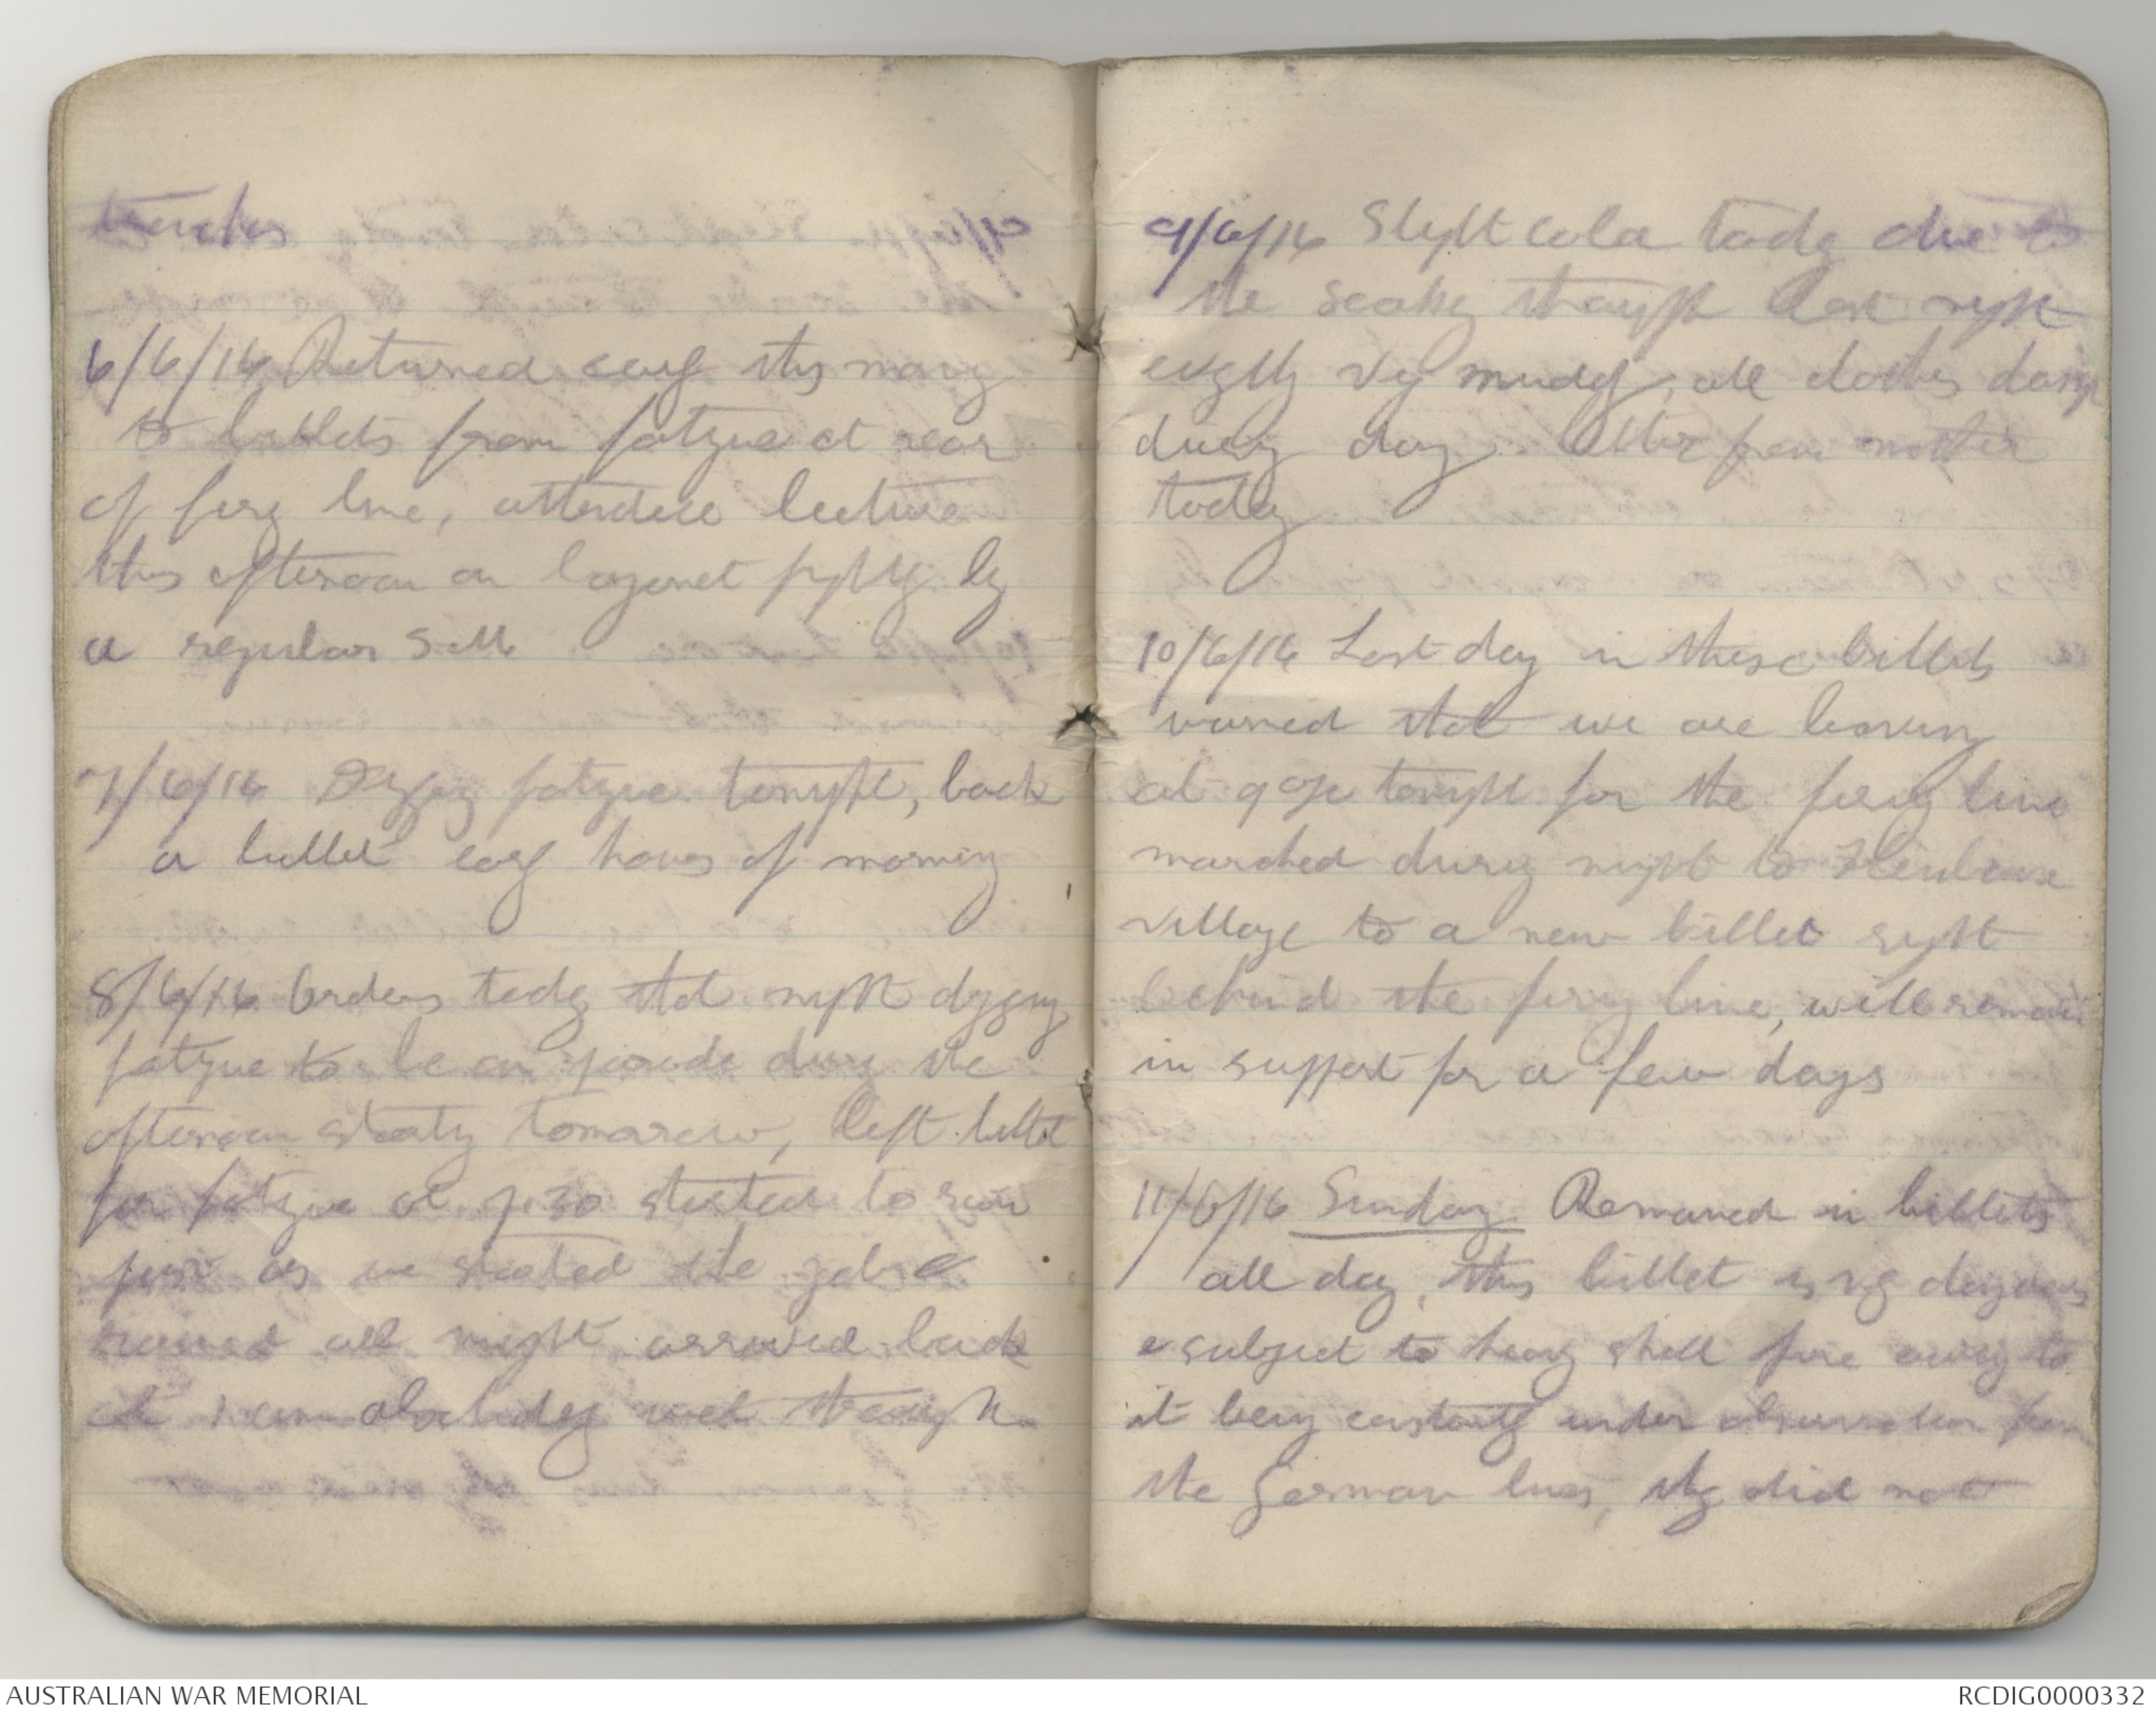 trenches
6/6/16 Returned early this morng
to billets from fatigue at rear
of firg line, attended lecture
this afternoon on bayonet fightg by
a regular
7/6/16 Diggig fatigue tonight, back
a billet early hours of morning
8/6/16 Orders today that night diggng
fatigue to be on parade durg the
afternoon startg tomorrow, left billet
for fatigue at 7.30 started to rain
just as we started the job &
rained all night arrived back
at 1 am absolutely wet through.
9/6/16 Slight cold today due to
the soakg through last night
everythg very muddy, all clothes damp
during day. Letter from mother
today
10/6/16 Last day in these billets
warned that we are leaving
at 9 tonight for the firing line
marched during night to Fleurbaix
village to a new billet right
behind the firing line, will remain
in support for a few days
11/6/16 Sunday Remained in billets
all day, this billet is vy dangerous
& subject to heavy shell fire owing to
it being constantly under observation from
the German lines, they did not
AUSTRALIAN WAR MEMORIAL
RCDIG0000332